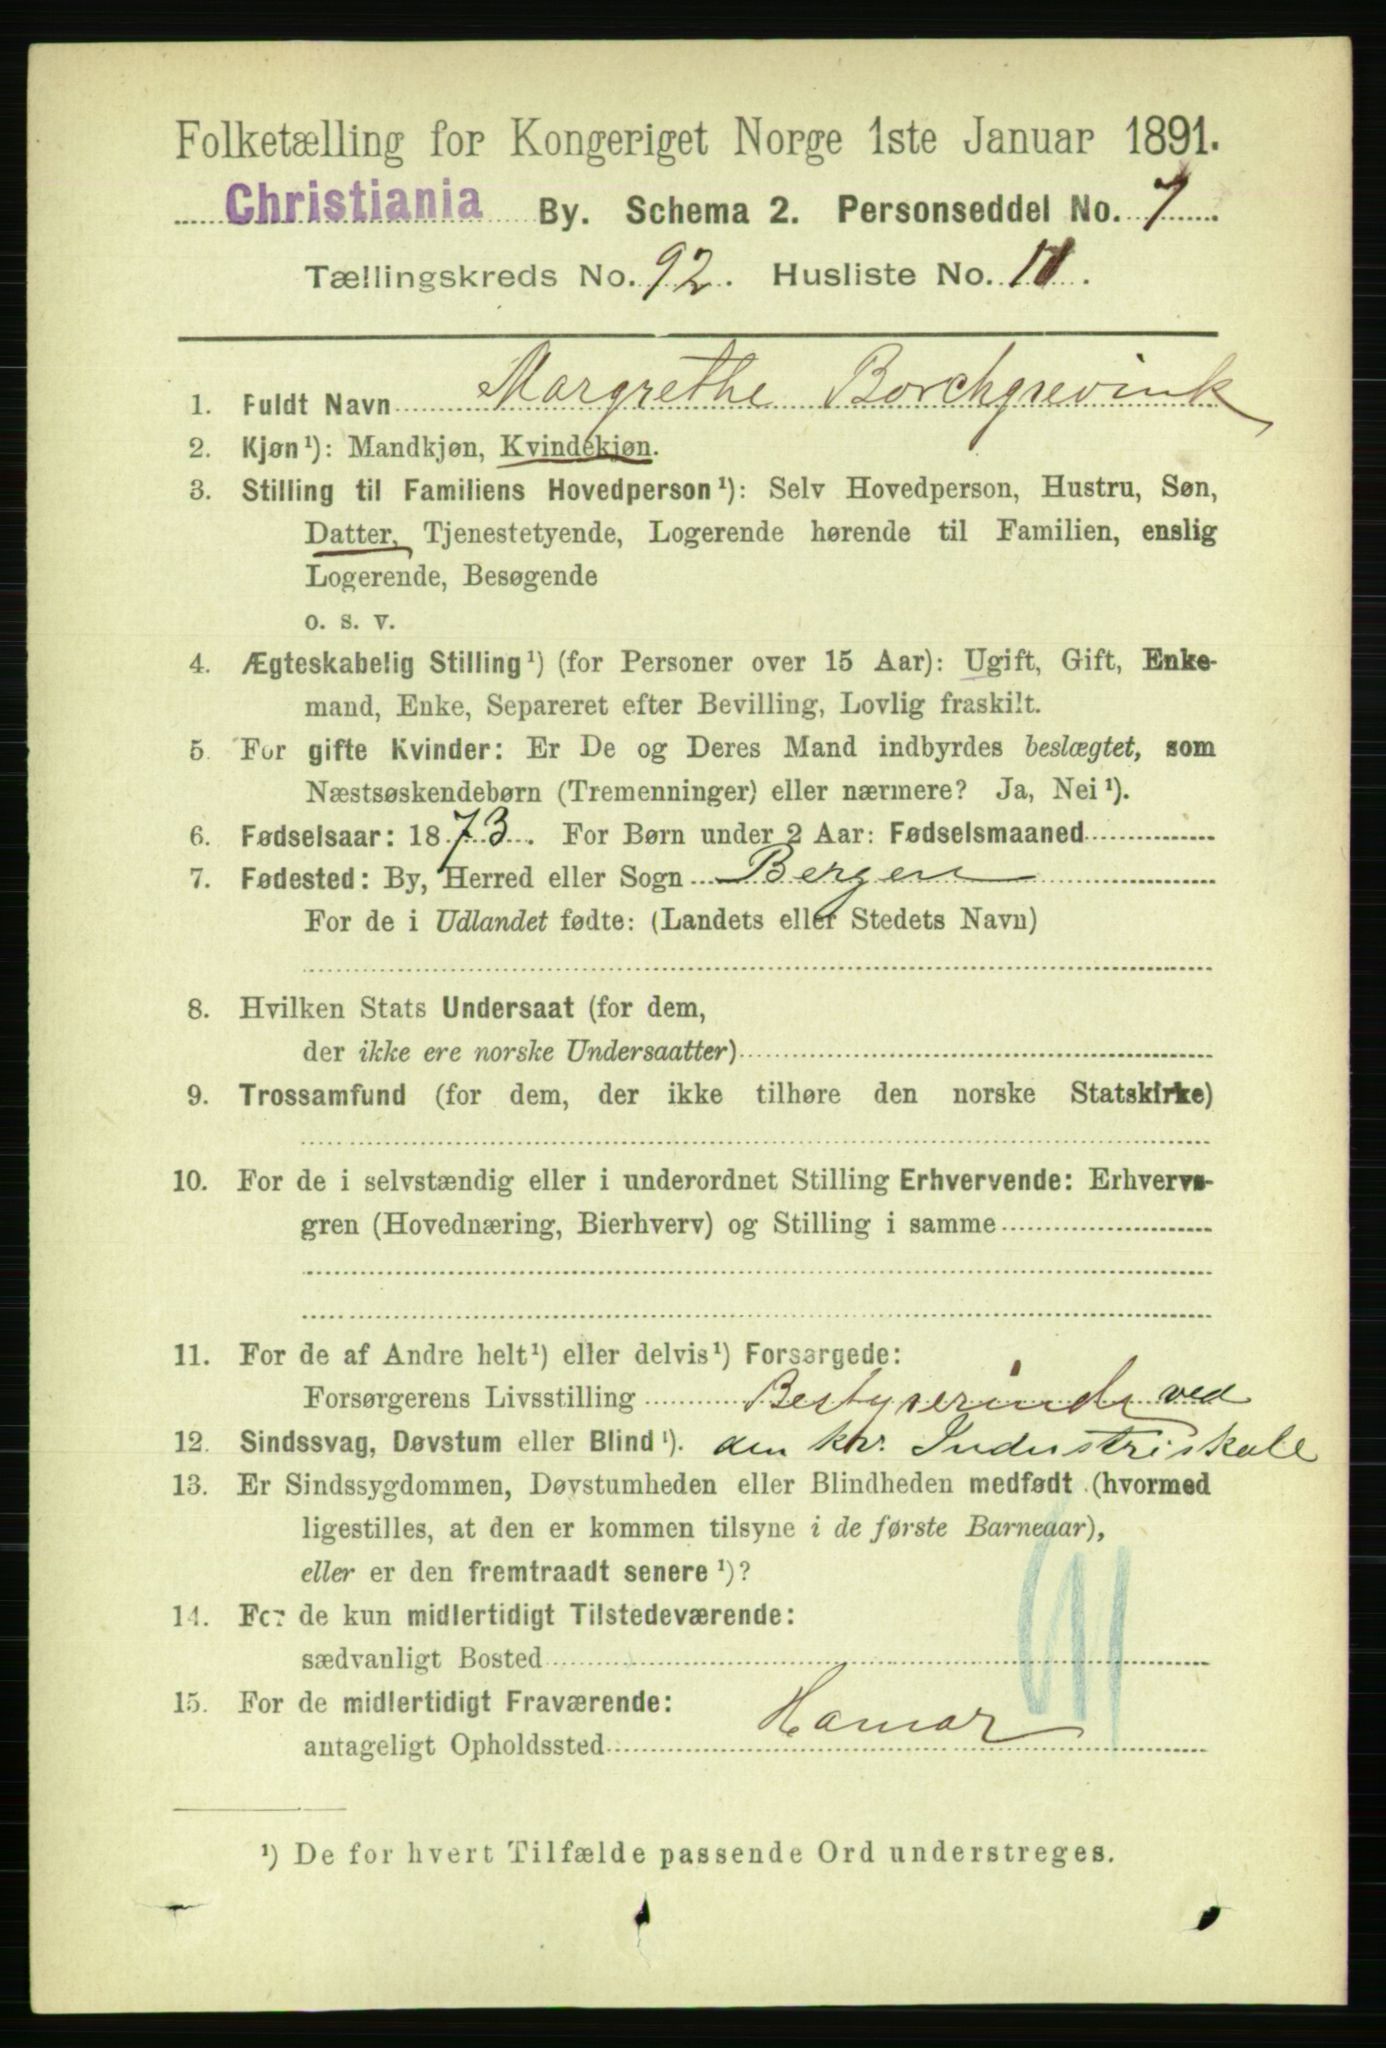 Folketælling for Kongeriget Norge 1ste Januar 1891.
Christiania By. Schema 2. Personseddel No. 7.
Tællingskreds No. 92. Husliste No. 11.
1. Fuldt Navn Margrethe Borchgrevink
2. Kjøn¹): Mandkjøn, Kvindekjøn.
3. Stilling til Familiens Hovedperson¹): Selv Hovedperson, Hustru, Søn,
Datter, Tjenestetyende, Logerende hørende til Familien, enslig
Logerende, Besøgende
o. s. v.
4. Ægteskabelig Stilling¹) (for Personer over 15 Aar): Ugift, Gift, Enke-
mand, Enke, Separeret efter Bevilling, Lovlig fraskilt.
5. For gifte Kvinder: Er De og Deres Mand indbyrdes beslægtet, som
Næstsøskendebørn (Tremenninger) eller nærmere? Ja, Nei¹).
6. Fødselsaar: 1873. For Børn under 2 Aar: Fødselsmaaned
7. Fødested: By, Herred eller Sogn Bergen
For de i Udlandet fødte: (Landets eller Stedets Navn)
8. Hvilken Stats Undersaat (for dem,
der ikke ere norske Undersaatter)
9. Trossamfund (for dem, der ikke tilhøre den norske Statskirke)
10. For de i selvstændig eller i underordnet Stilling Erhvervende: Erhvervs-
gren (Hovednæring, Bierhverv) og Stilling i samme
11. For de af Andre helt¹) eller delvis¹) Forsørgede:
Forsørgerens Livsstilling Bestyrerinde ved
12. Sindssvag, Døvstum eller Blind¹). den kv. Industriskole
13. Er Sindssygdommen, Døvstumheden eller Blindheden medfødt (hvormed
ligestilles, at den er kommen tilsyne i de første Barneaar),
eller er den fremtraadt senere¹)?
14. For de kun midlertidigt Tilstedeværende:
sædvanligt Bosted
15. For de midlertidigt Fraværende:
antageligt Opholdssted Hamar
¹) De for hvert Tilfælde passende Ord understreges.